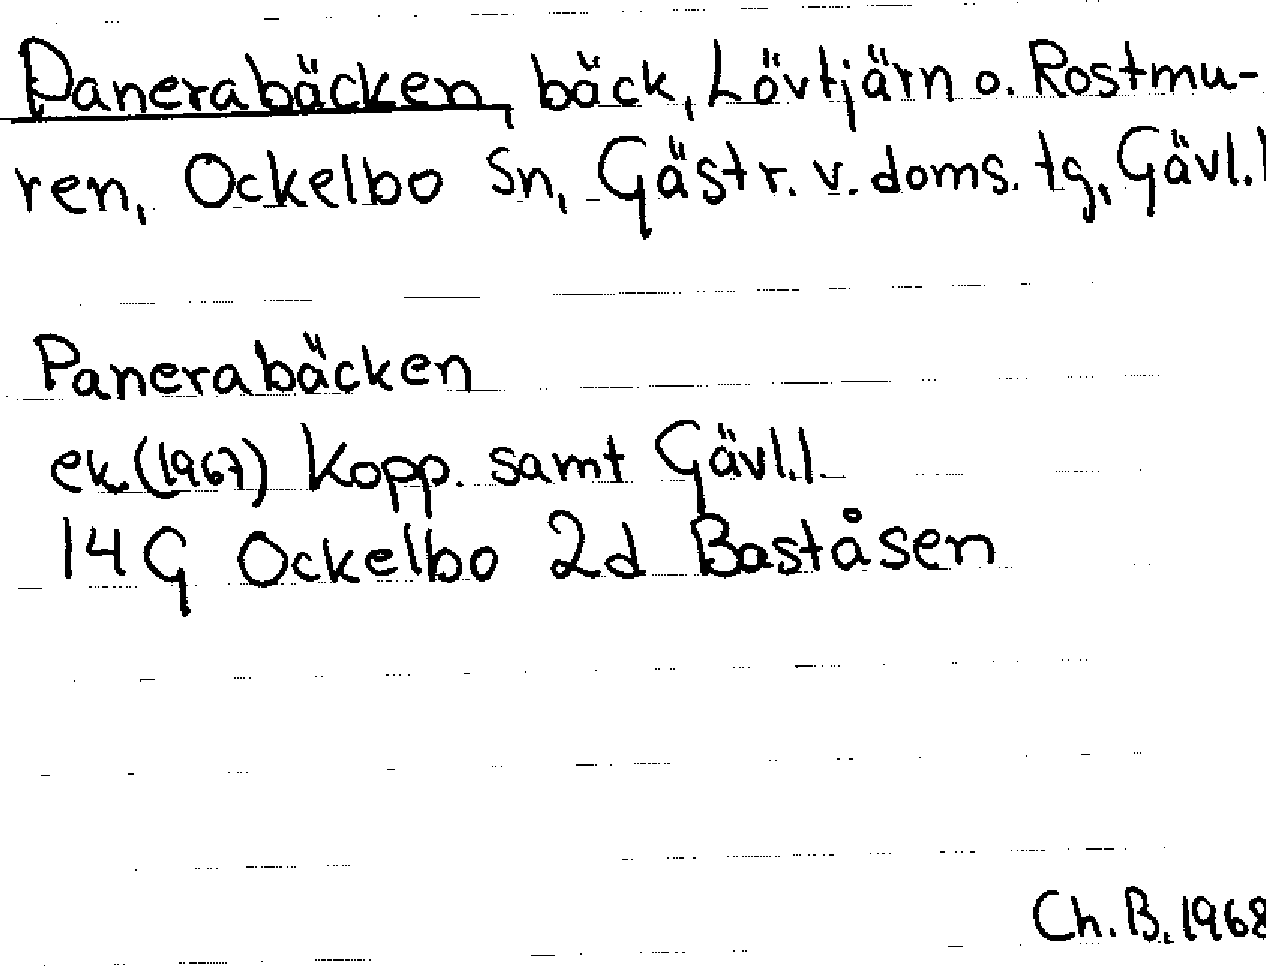 Panerabäcken, bäck, Lövtjärn o. Rostmu-
ren, Ockelbo Sn, Gästr. v. doms. tg, Gävl. l
Panerabäcken
ek (1967) Kopp. samt Gävl. l.
14G Ockelbo 2d Baståsen
Ch. B. 1968